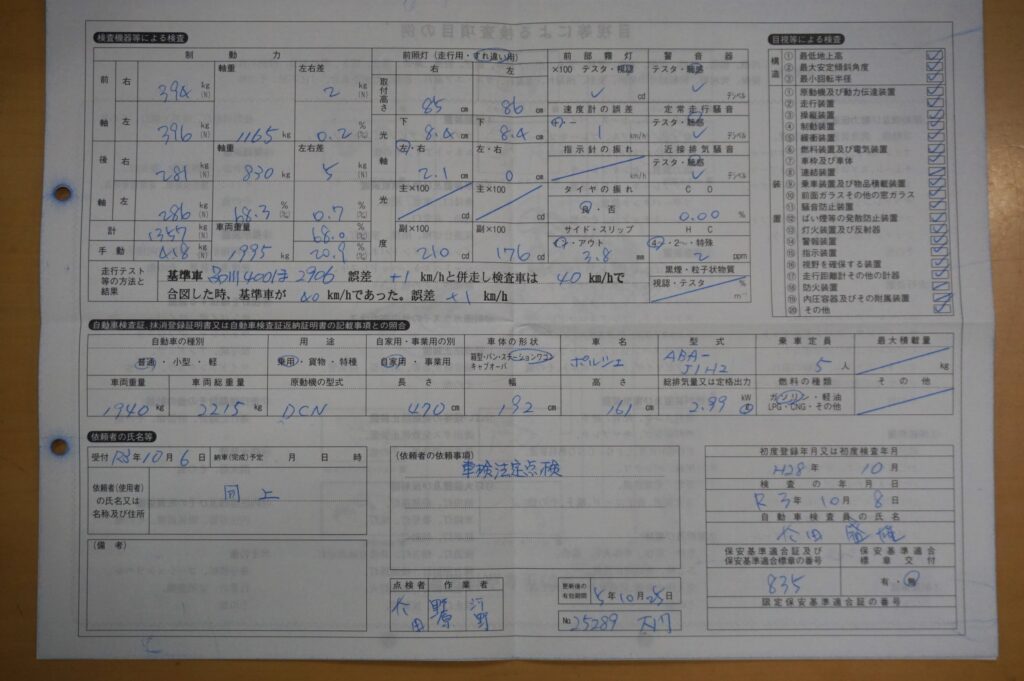 検査機器等による検査
制動力
前照灯(走行用・すれ違い用)
前部霧灯
警音器
前 右 394 kg(N) 軸重 左右差 2 kg(N)
軸 左 396 kg(N) 1165 kg 0.2 %
後 右 281 kg(N) 軸重 830 kg 左右差 5 kg(N)
軸 左 286 kg(N) 68.3 % 0.7 %
計 1357 kg(N) 車両重量 68.0 %
手動 418 kg(N) 1995 kg 20.9 %
右 左
取付高さ 85 cm 86 cm
光軸 下 8.4 cm 下 8.4 cm
左・右 2.1 cm 左・右 0 cm
光度 主×100 主×100
副×100 210 副×100 176 cd
×100 テスタ・視認 ✓ cd
テスタ・聴感 ✓ デシベル
速度計の誤差 定常走行騒音
+ − 1 km/h テスタ・聴感 ✓ デシベル
指示計の振れ 近接排気騒音
km/h テスタ・聴感 ✓ デシベル
タイヤの振れ CO
良・否 0.00 %
サイド・スリップ HC
イン・アウト 3.8 mm 4・2〜・特殊 2 ppm
黒煙・粒子状物質
視認・テスタ % m⁻¹
走行テスト等の方法と結果
基準車 品川400は2906 誤差 +1 km/hと併走し検査車は 40 km/hで
合図した時、基準車が 40 km/hであった。誤差 +1 km/h
目視等による検査
構造
① 最低地上高
② 最大安定傾斜角度
③ 最小回転半径
装置
① 原動機及び動力伝達装置
② 走行装置
③ 操縦装置
④ 制動装置
⑤ 緩衝装置
⑥ 燃料装置及び電気装置
⑦ 車枠及び車体
⑧ 連結装置
⑨ 乗車装置及び物品積載装置
⑩ 前面ガラスその他の窓ガラス
⑪ 騒音防止装置
⑫ ばい煙等の発散防止装置
⑬ 灯火装置及び反射器
⑭ 警報装置
⑮ 指示装置
⑯ 視野を確保する装置
⑰ 走行距離計その他の計器
⑱ 防火装置
⑲ 内圧容器及びその附属装置
⑳ その他
自動車検査証、抹消登録証明書又は自動車検査証返納証明書の記載事項との照合
自動車の種別 用途 自家用・事業用の別 車体の形状 車名 型式 乗車定員 最大積載量
普通・小型・軽 乗用・貨物・特種 自家用・事業用 箱型・バン・ステーションワゴン キャブオーバ ポルシェ ABA-J1H2 5 人 kg
車両重量 車両総重量 原動機の型式 長さ 幅 高さ 総排気量又は定格出力 燃料の種類 その他
1940 kg 2215 kg DCN 470 cm 192 cm 161 cm 2.99 kW ℓ ガソリン・軽油 LPG・CNG・その他
依頼者の氏名等
受付 R3年10月6日 納車(完成)予定 月 日 時
依頼者(使用者)の氏名又は名称及び住所 同上
(備考)
(依頼者の依頼事項)
車検法定点検
点検者 作業者
更新後の有効期間 5年10月25日
No. 25289
初度登録年月又は初度検査年月
H28年 10月
検査の年月日
R3年 10月 8日
自動車検査員の氏名
保安基準適合証及び保安基準適合標章の番号 保安基準適合標章交付
835 有・無
限定保安基準適合証の番号